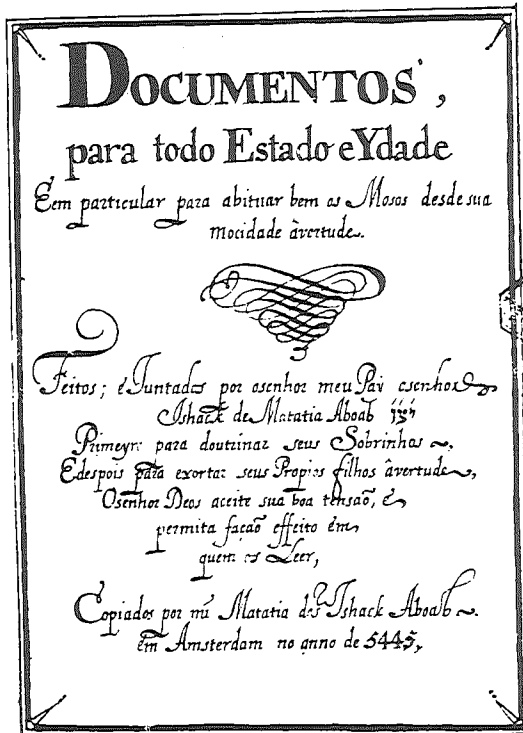 DOCUMENTOS,
para todo Estado e Ydade
E em particular para abituar bem os Mosos desde sua
mocidade àvertude.
Feitos; é Juntados por osenhor meu Pay osenhor
Ishack de Matatia Aboab
Primeyro para doutrinar seus Sobrinhos
E despois para exortar seus Propios filhos âvertude,
Osenhor Deos aceite sua boa tensaõ, é
permita façaõ effeito êm
quem os Leer,
Copiados por mŭ Matatia de Ishack Aboab
em Amsterdam no anno de 5445,